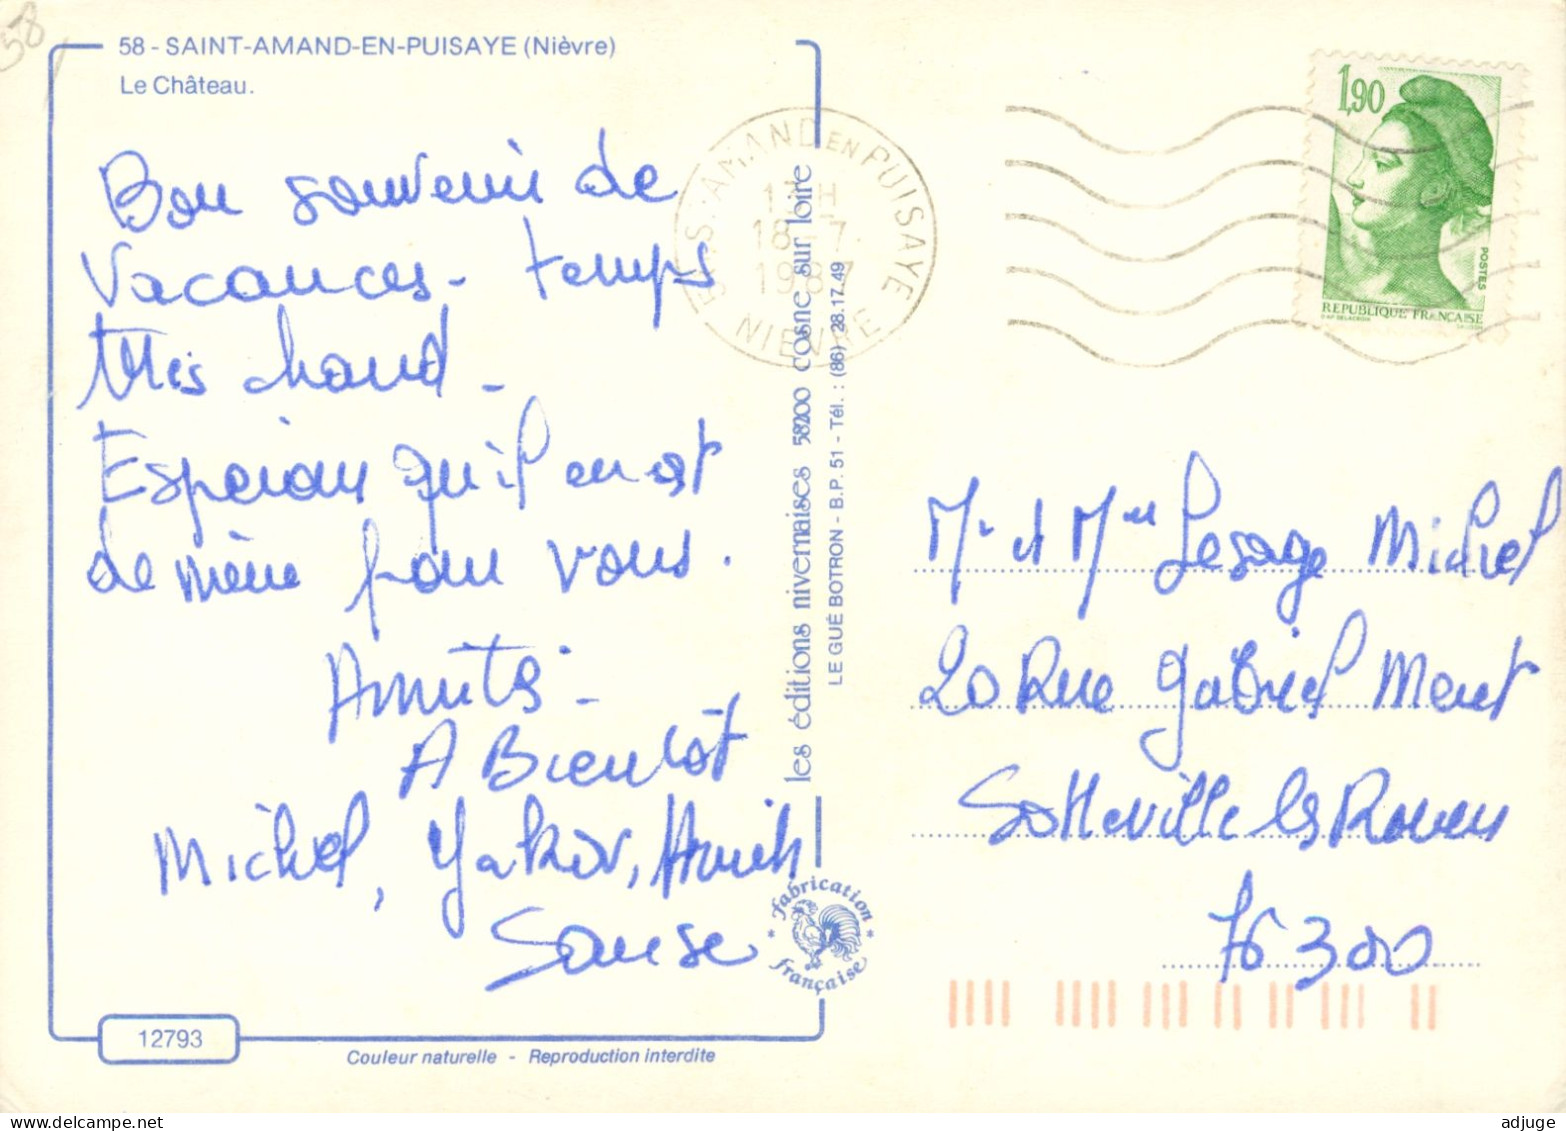 58
58 - SAINT-AMAND-EN-PUISAYE (Nièvre)
Le Château.
Bon souvenir de
Vacances - temps
très chaud -
Esperant qu'il en est
de même pour vous.
Amitié -
A Bientôt
Michel,
58 ST-AMAND EN PUISAYE
17 H
18 - 7
1987
NIEVRE
les éditions nivernaises 58200 cosne sur loire
LE GUÉ BOTRON - B.P. 51 - Tél. : (86) 28.17.49
fabrication
française
1,90
POSTES
REPUBLIQUE FRANÇAISE
Mr et Mme Lesage Michel
20 Rue Gabriel
Sotteville les Rouen
76300
12793
Couleur naturelle - Reproduction interdite
adjuge
www.delcampe.net